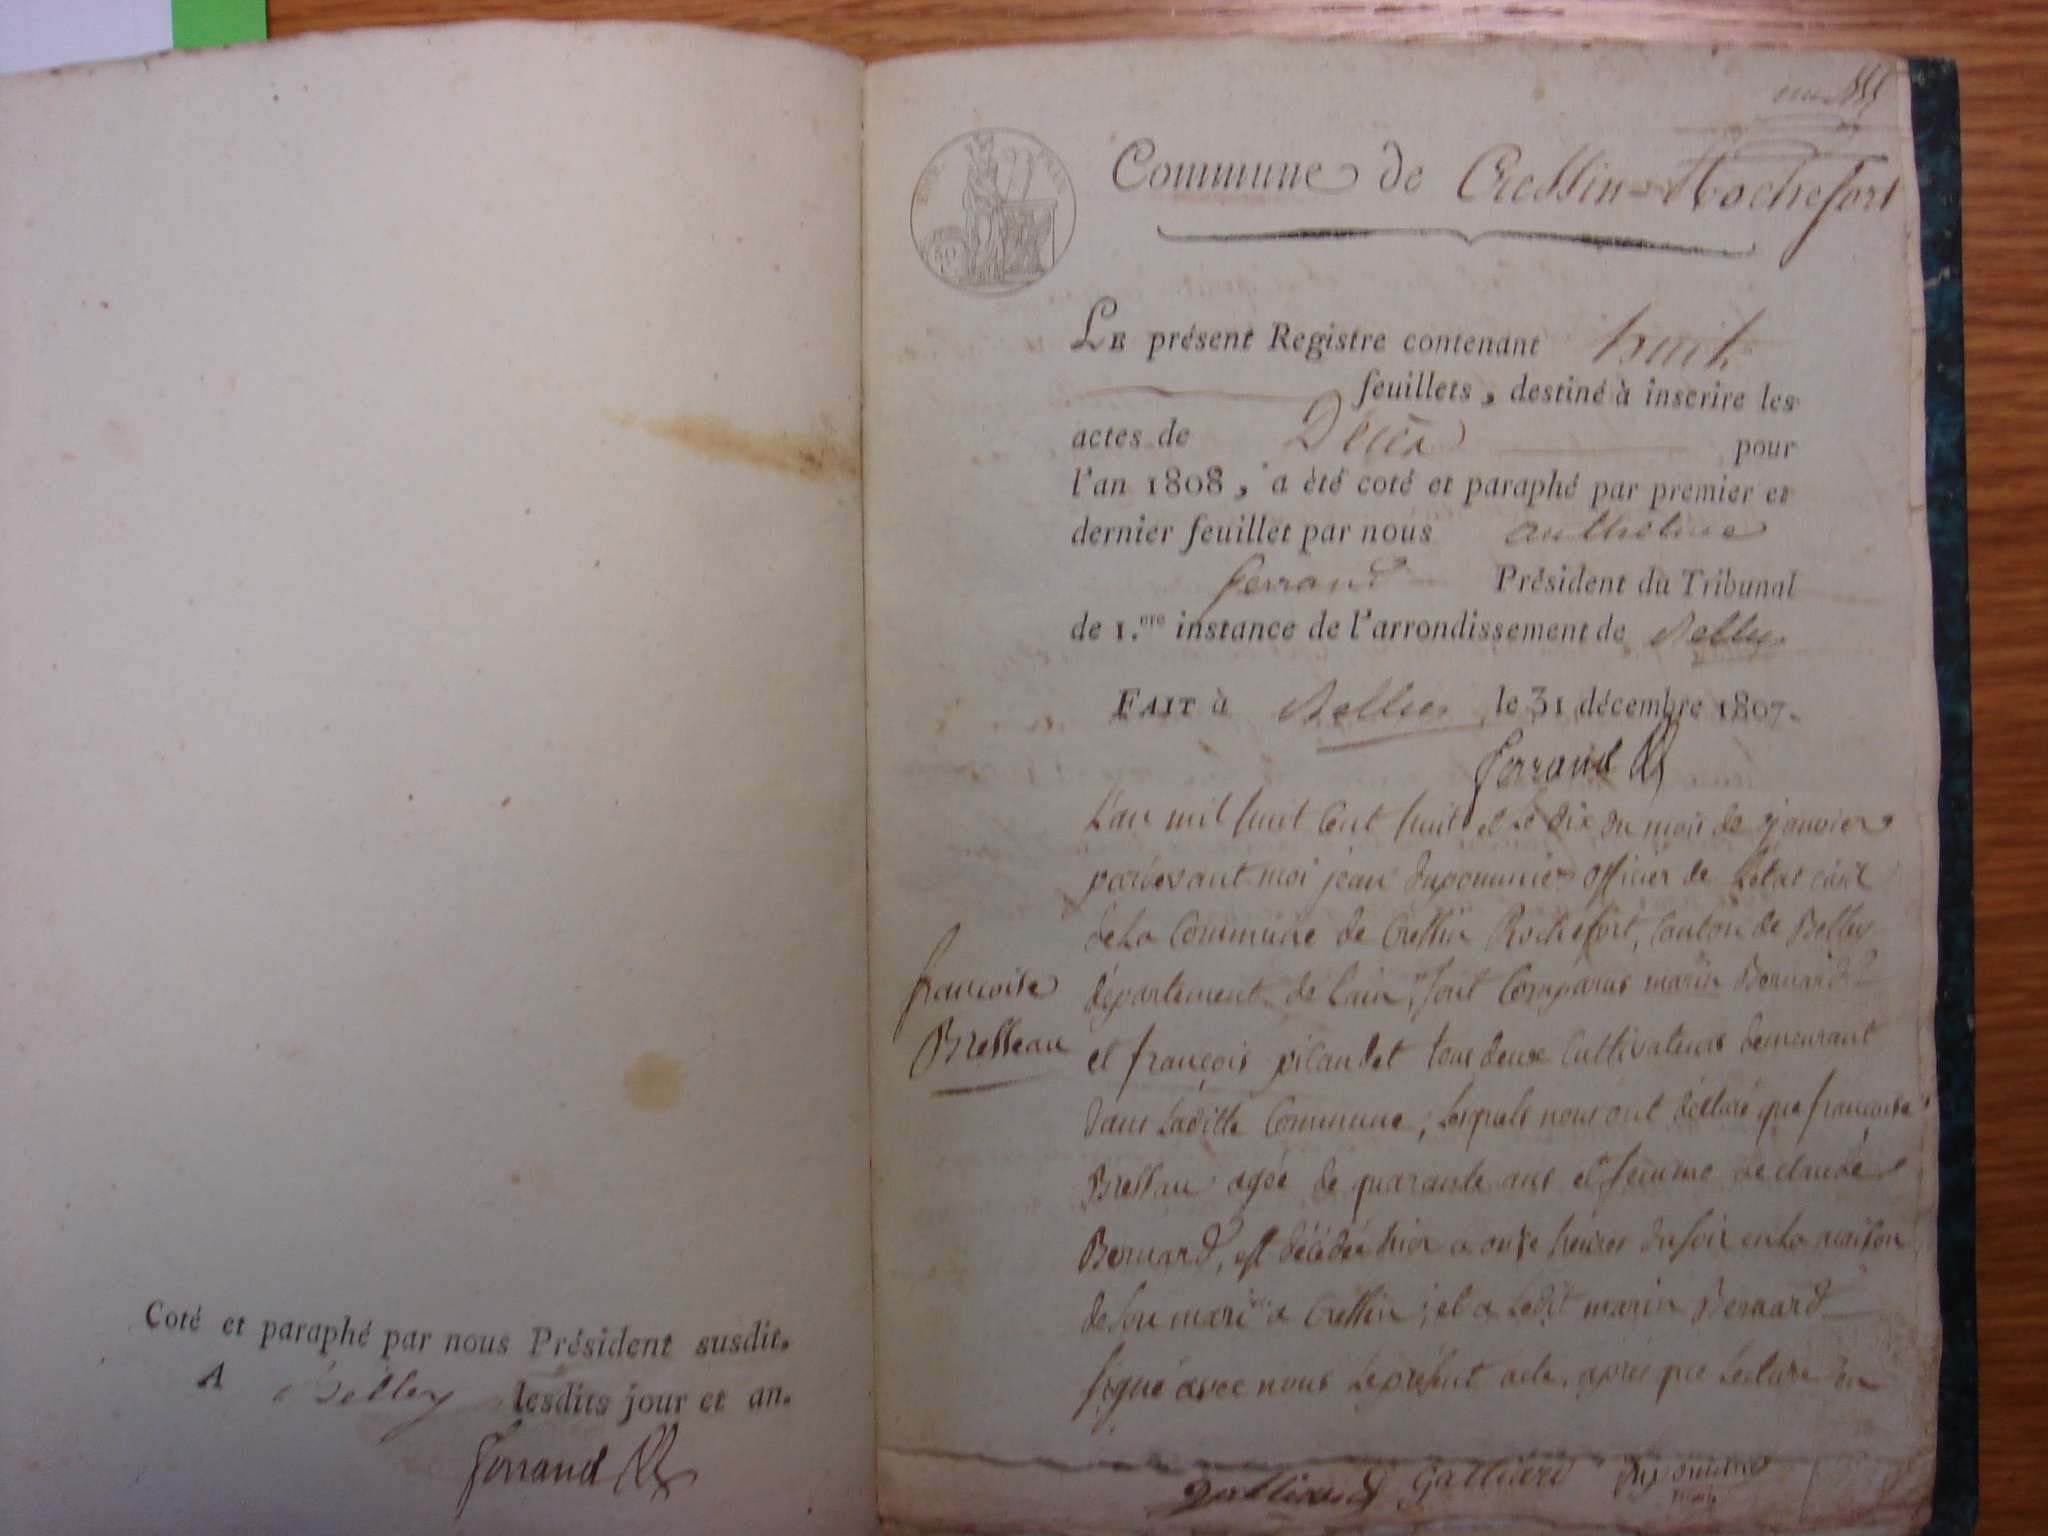 Coté et paraphé par nous Président susdit.
A Belley lesdits jour et an.
Ferrand
Commune de Cressin-Rochefort
LE présent Registre contenant huit
feuillets, destiné à inscrire les
actes de Décès pour
l'an 1808, a été coté et paraphé par premier et
dernier feuillet par nous anthelme
ferrand Président du Tribunal
de 1.ere instance de l'arrondissement de Belley
FAIT à Belley le 31 décembre 1807.
Ferrand
L'an mil huit cent huit et le dix du mois de janvier
pardevant moi jean dupommier officier de l'état civil
de la Commune de Cressin Rochefort, canton de Belley
département de l'ain, sont comparus marin Bernard
françoise
Bresseau
et françois picaudet tous deux cultivateurs demeurant
dans laditte Commune, lesquels nous ont déclaré que françoise
Bressau agée de quarante ans et femme de claude
Bernard, est décédée hier a onze heures du soir en la maison
de son mari a Cressin; et a ledit marin Bernard
signé avec nous le présent acte, après que lecture en